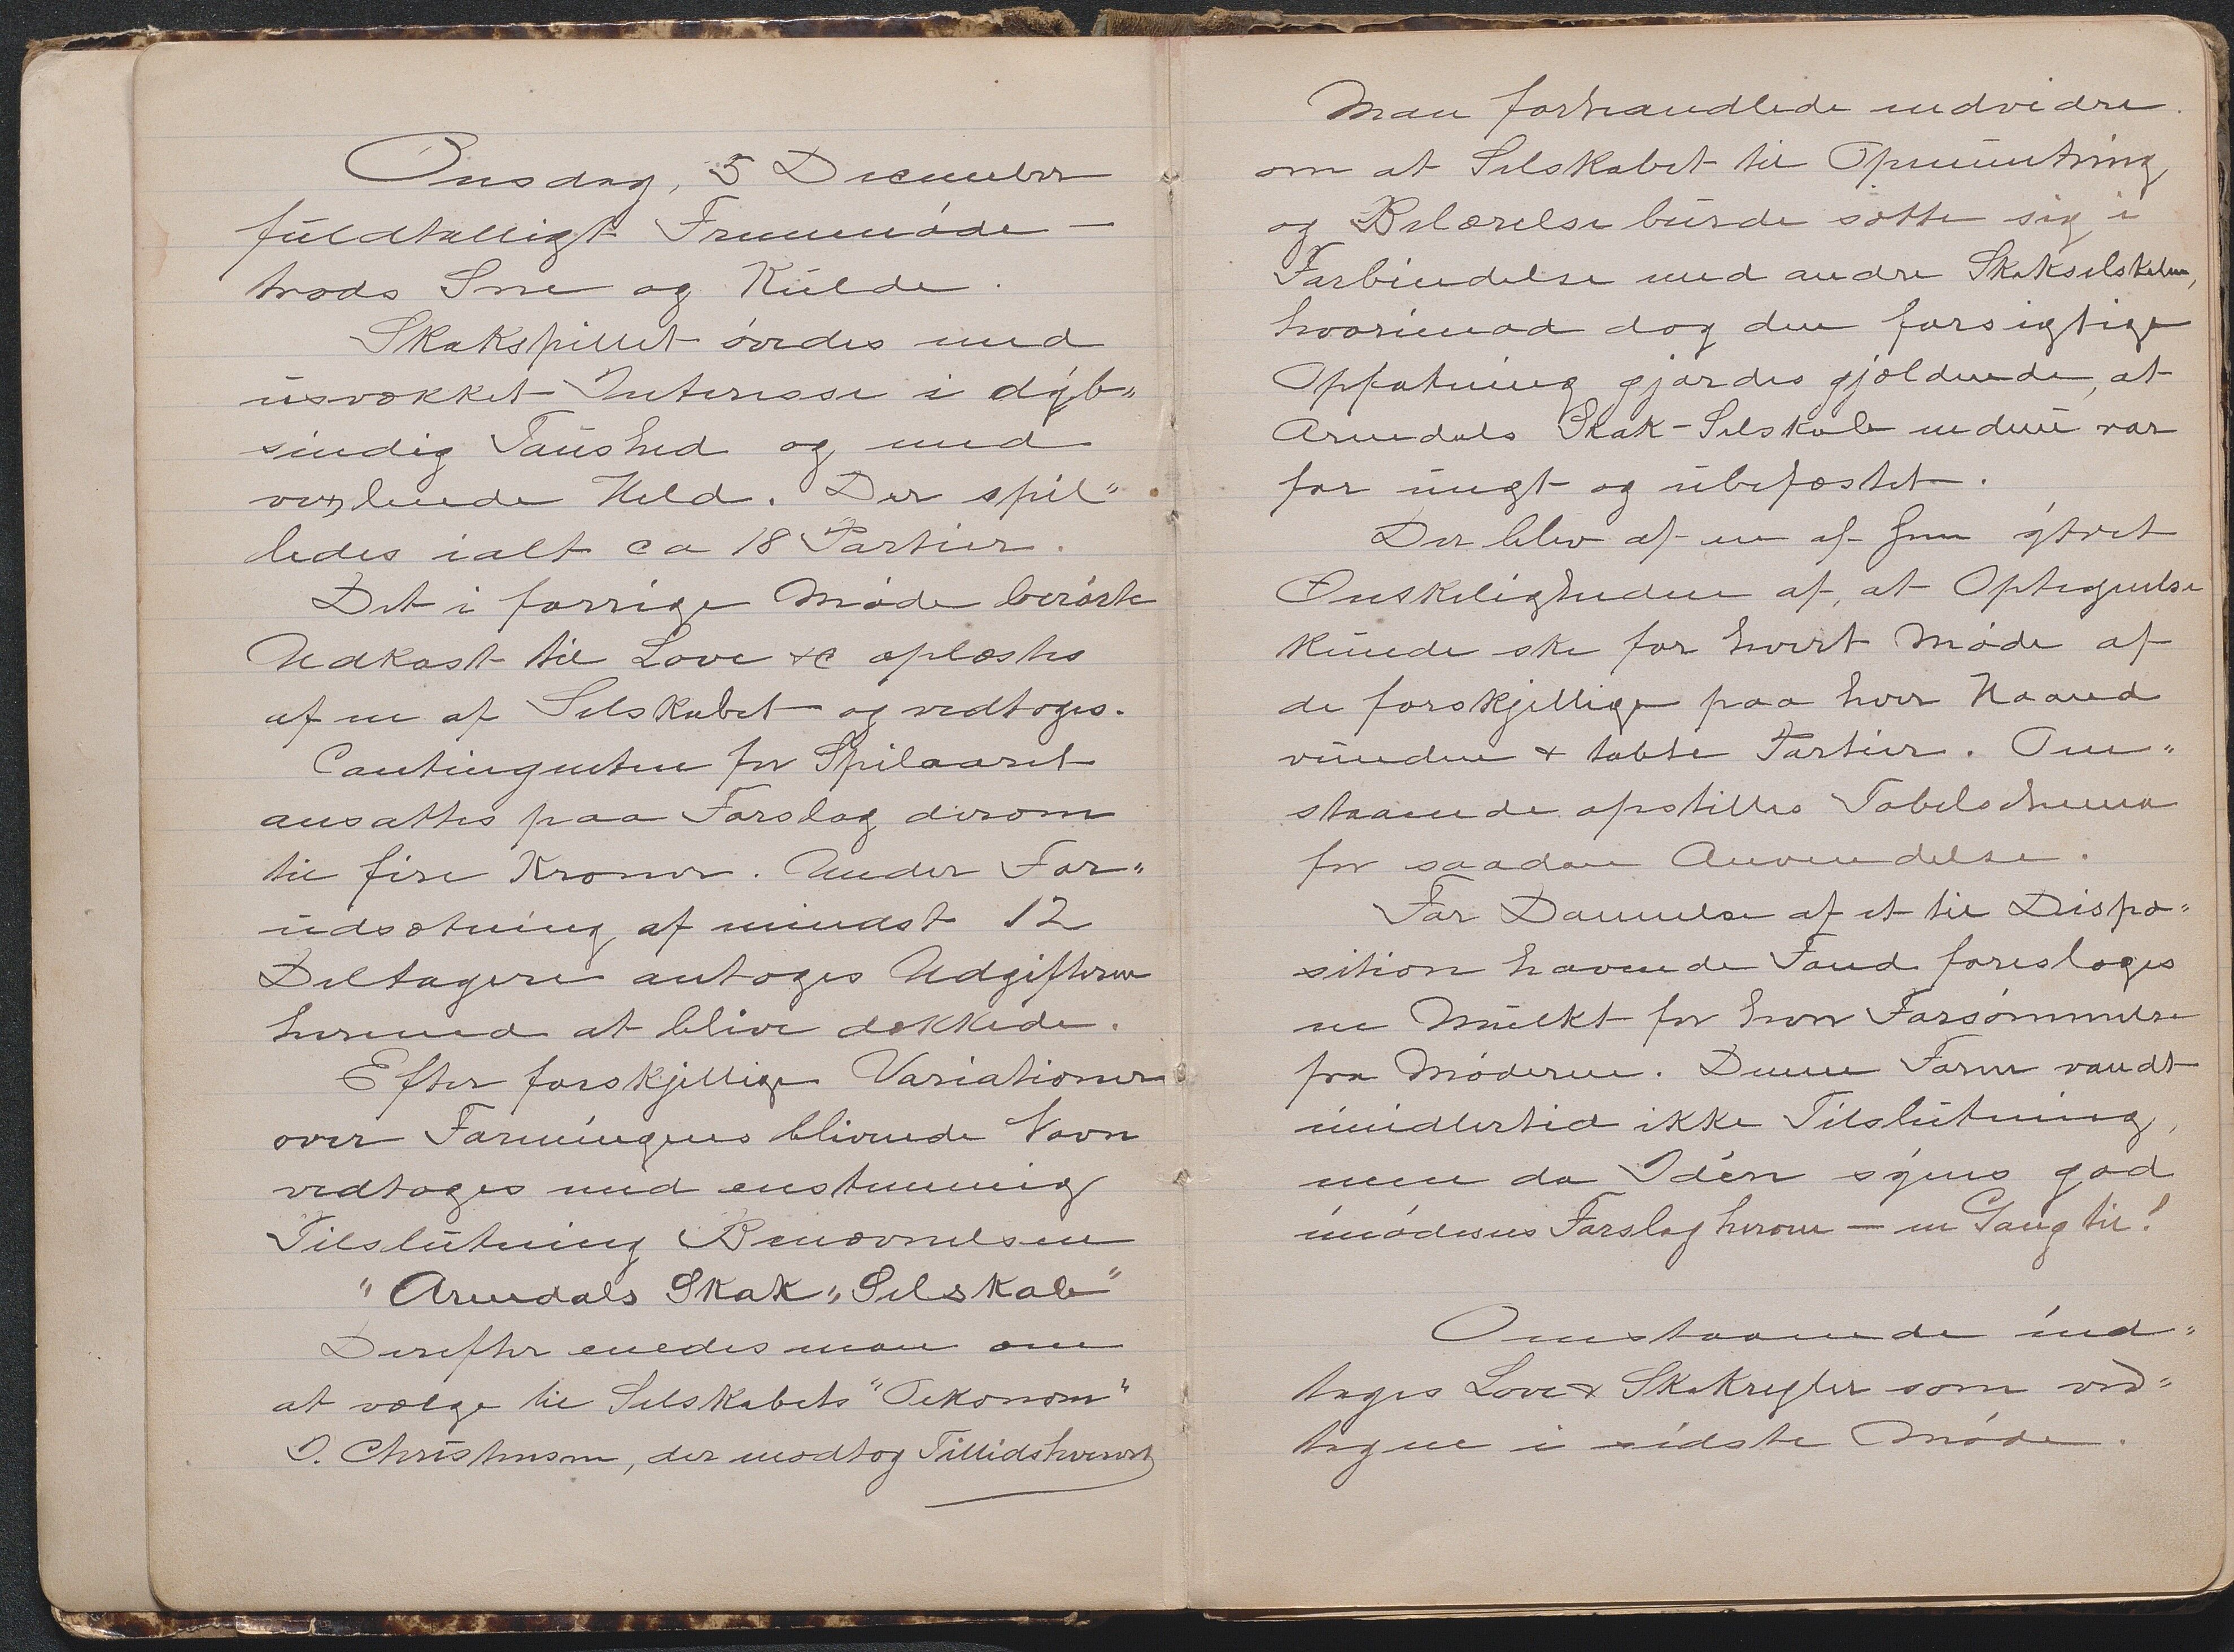 Onsdag, 5 December
fuldtalligt Fremmøde —
trods Sne og Kulde.
Skakspillet øvedes med
usvækket Interesse i dyb„
sindig Taushed og med
vexlende Held. Der spil„
ledes ialt ca 18 Partier.
Det i forrige Møde berørte
Udkast til Love &c oplæstes
af en af Selskabet og vedtoges.
Contingenten for Spilaaret
ansattes paa Forslag derom
til fire Kroner. Under For„
udsætning af mindst 12
Deltagere antoges Udgifterne
hermed at blive dækkede.
Efter forskjellige Variationer
over Foreningens blivende Navn
vedtoges med enstemmig
Tilslutning Benævnelsen
"Arendals Skak„Selskab"
Derefter enedes man om
at vælge til Selskabets "Oekonom"
O. Christensen, der modtog Tillidshvervet
Man forhandlede endvidre
om at Selskabet til Opmuntring
og Belærelse burde sætte sig i
Forbindelse med andre Skakselskaber,
hvorimod dog den forsigtige
Opfatning gjordes gjældende, at
Arendals Skak-Selskab endnu var
for ungt og ubefæstet.
Der blev af en af Hrr ytret
Ønskeligheden af, at Optegnelse
kunde ske for hvert Møde af
de forskjellige paa hver Haand
vundne & tabte Partier. Om„
staaende opstilles Tabelschema
for saadan Anvendelse.
For Dannelse af et til Dispo„
sition havende Fond foresloges
en Mulkt for hver Forsømmelse
fra Møderne. Denne Form vandt
imidlertid ikke Tilslutning,
men da Idéen synes god
imødesees Forslag herom — en Gang til!
Omstaaende ind„
tages Love & Skakregler som ved„
tagne i sidste Møde.